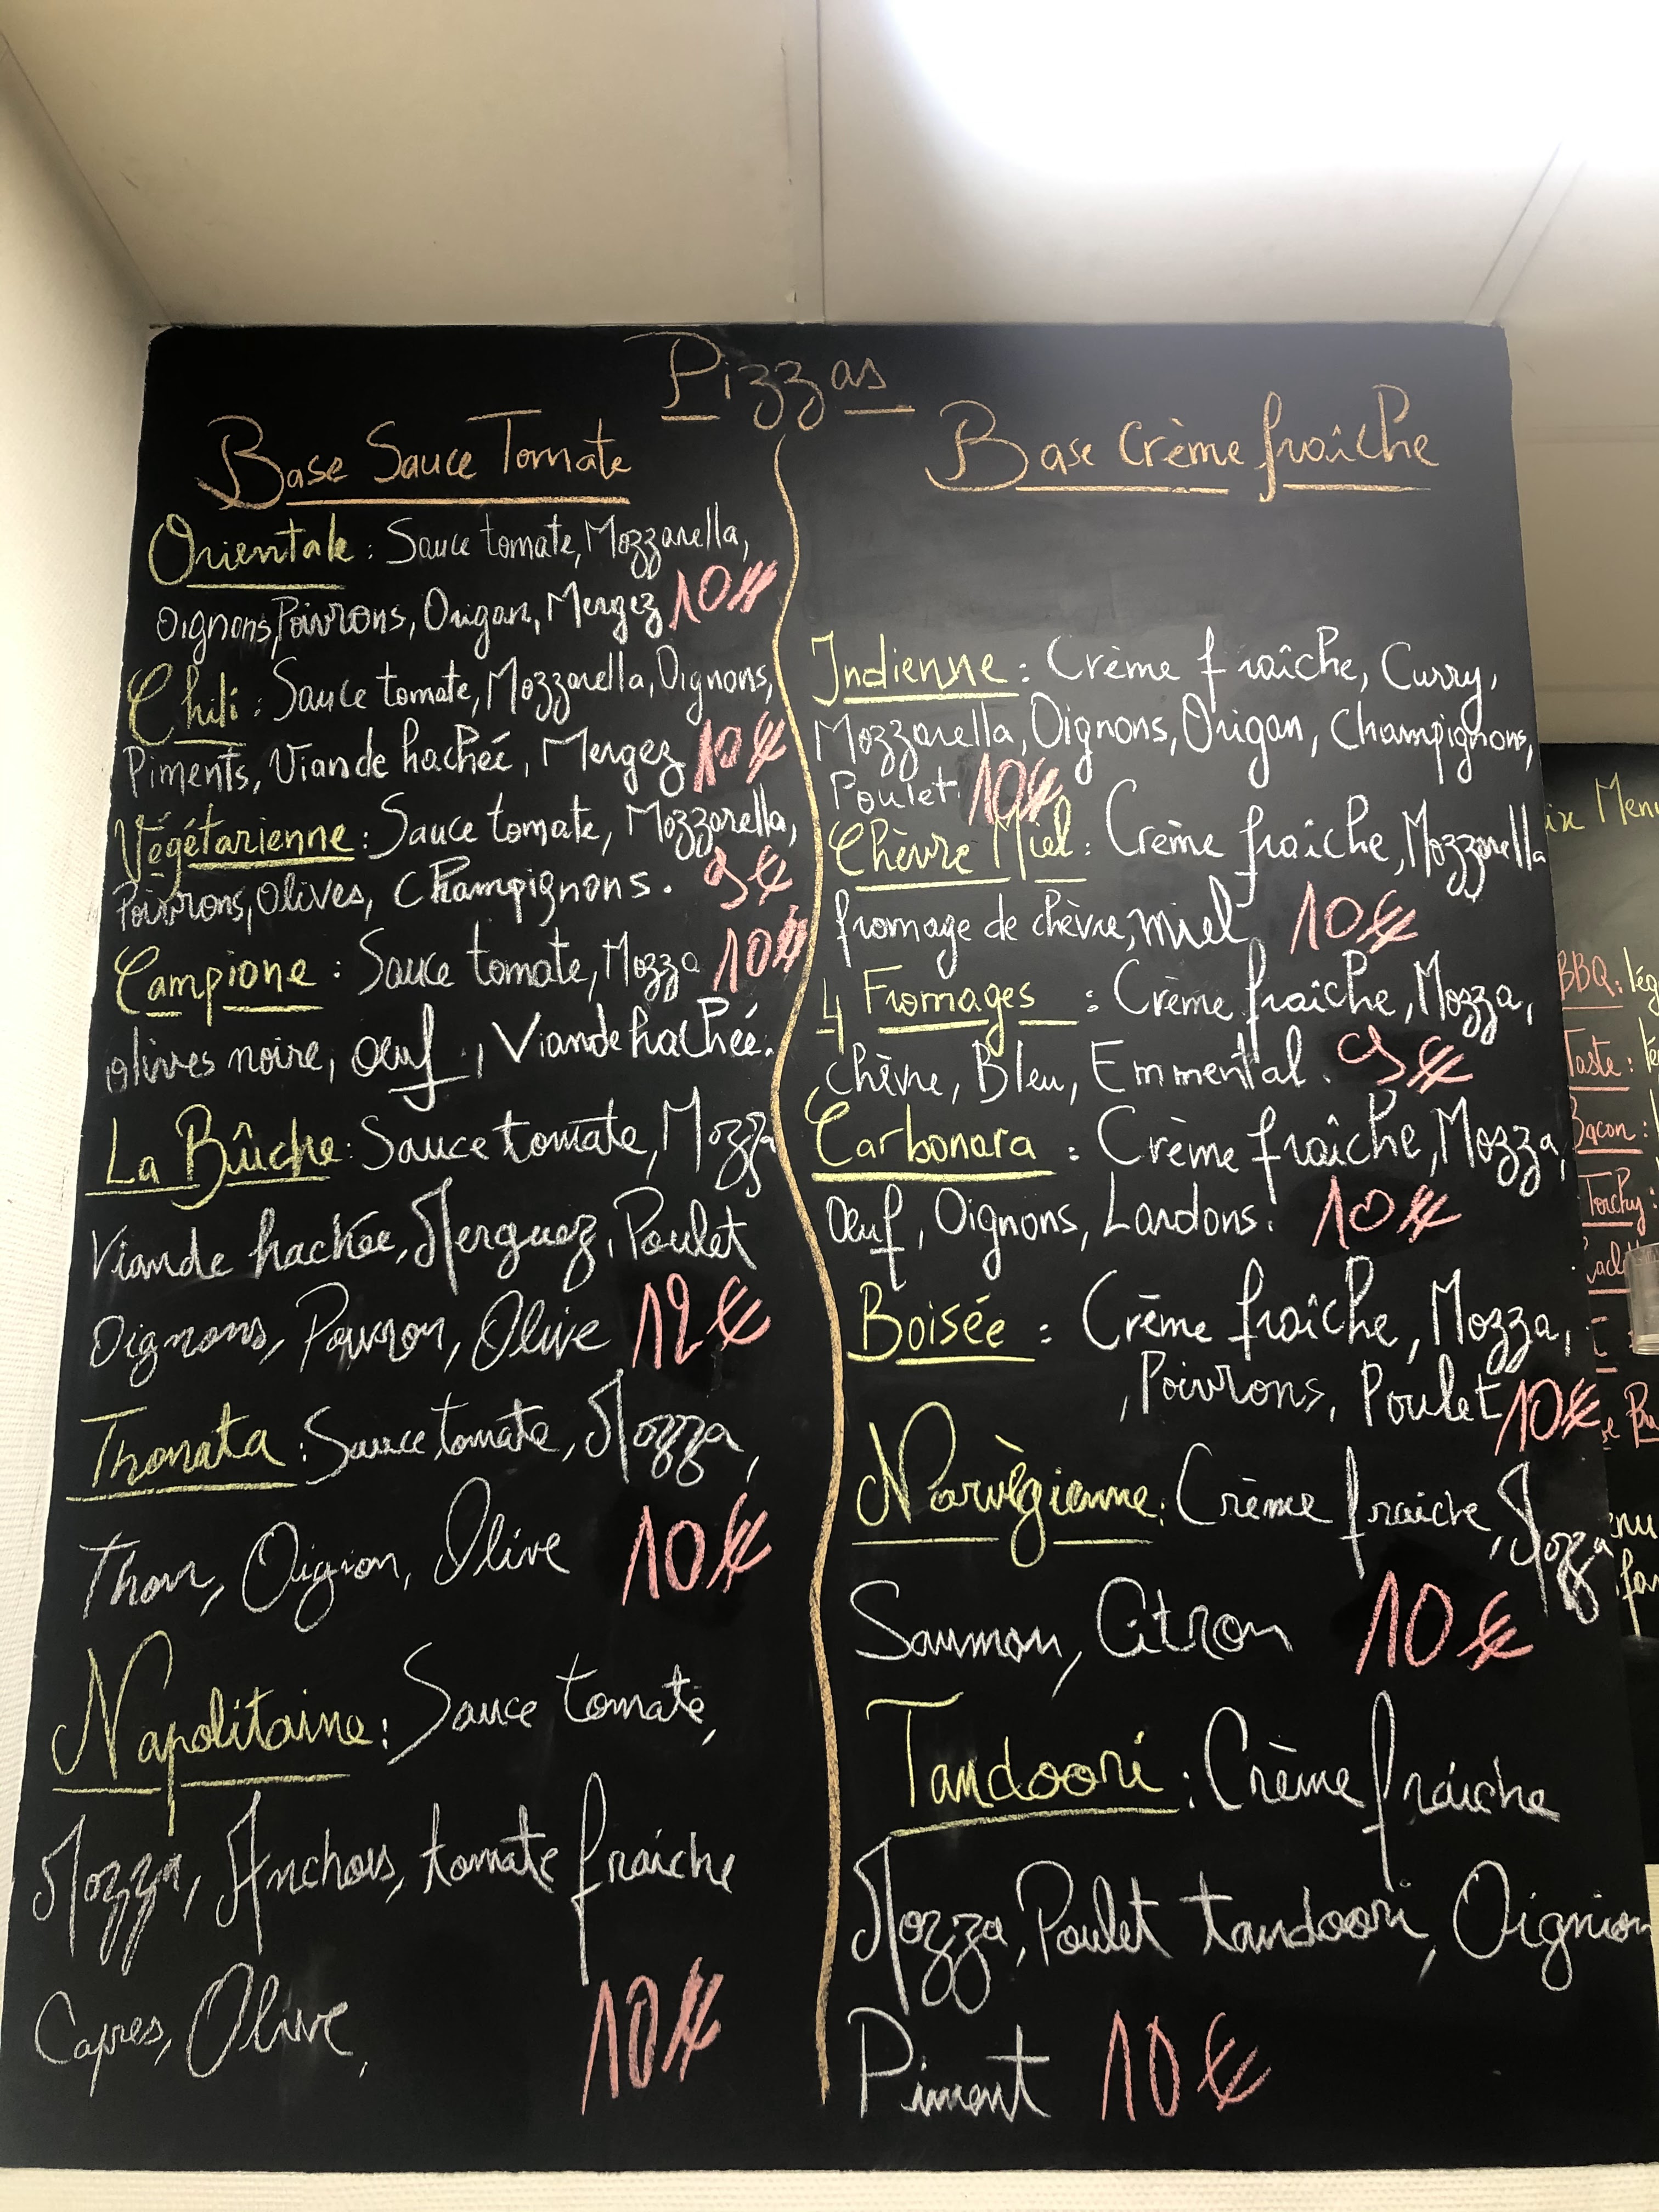 Pizzas
Base Sauce Tomate
Orientale : Sauce tomate, Mozzarella,
Oignons, Poivrons, Origan, Mergez 10€
Chili : Sauce tomate, Mozzarella, Oignons,
Piments, Viande hachéé, Mergez 10€
Végétarienne : Sauce tomate, Mozzarella,
Poivrons, Olives, Champignons. 9€
Campione : Sauce tomate, Mozza 10€
olives noire, Œuf, Viande hachéé.
La Bûche : Sauce tomate, Mozza
Viande hachée, Merguez, Poulet
Oignons, Poivron, Olive 12€
Thonata : Sauce tomate, Mozza,
Thon, Oignon, Olive 10€
Napolitaine : Sauce tomate,
Mozza, Anchois, tomate fraîche
Capres, Olive, 10€
Base Crème fraîche
Indienne : Crème fraîche, Curry,
Mozzarella, Oignons, Origan, Champignons,
Poulet 10€
Chèvre Miel : Crème fraîche, Mozzarella
fromage de chèvre, miel 10€
4 Fromages : Crème fraîche, Mozza,
chèvre, Bleu, Emmental. 9€
Carbonara : Crème fraîche, Mozza,
Œuf, Oignons, Lardons. 10€
Boisée : Crème fraîche, Mozza,
, Poivrons, Poulet 10€
Norvègienne : Crème fraiche, Mozza
Saumon, Citron 10€
Tandoori : Crème fraîche
Mozza, Poulet tandoori, Oignion
Piment 10€
Menu
BBQ :
Taste :
Bacon :